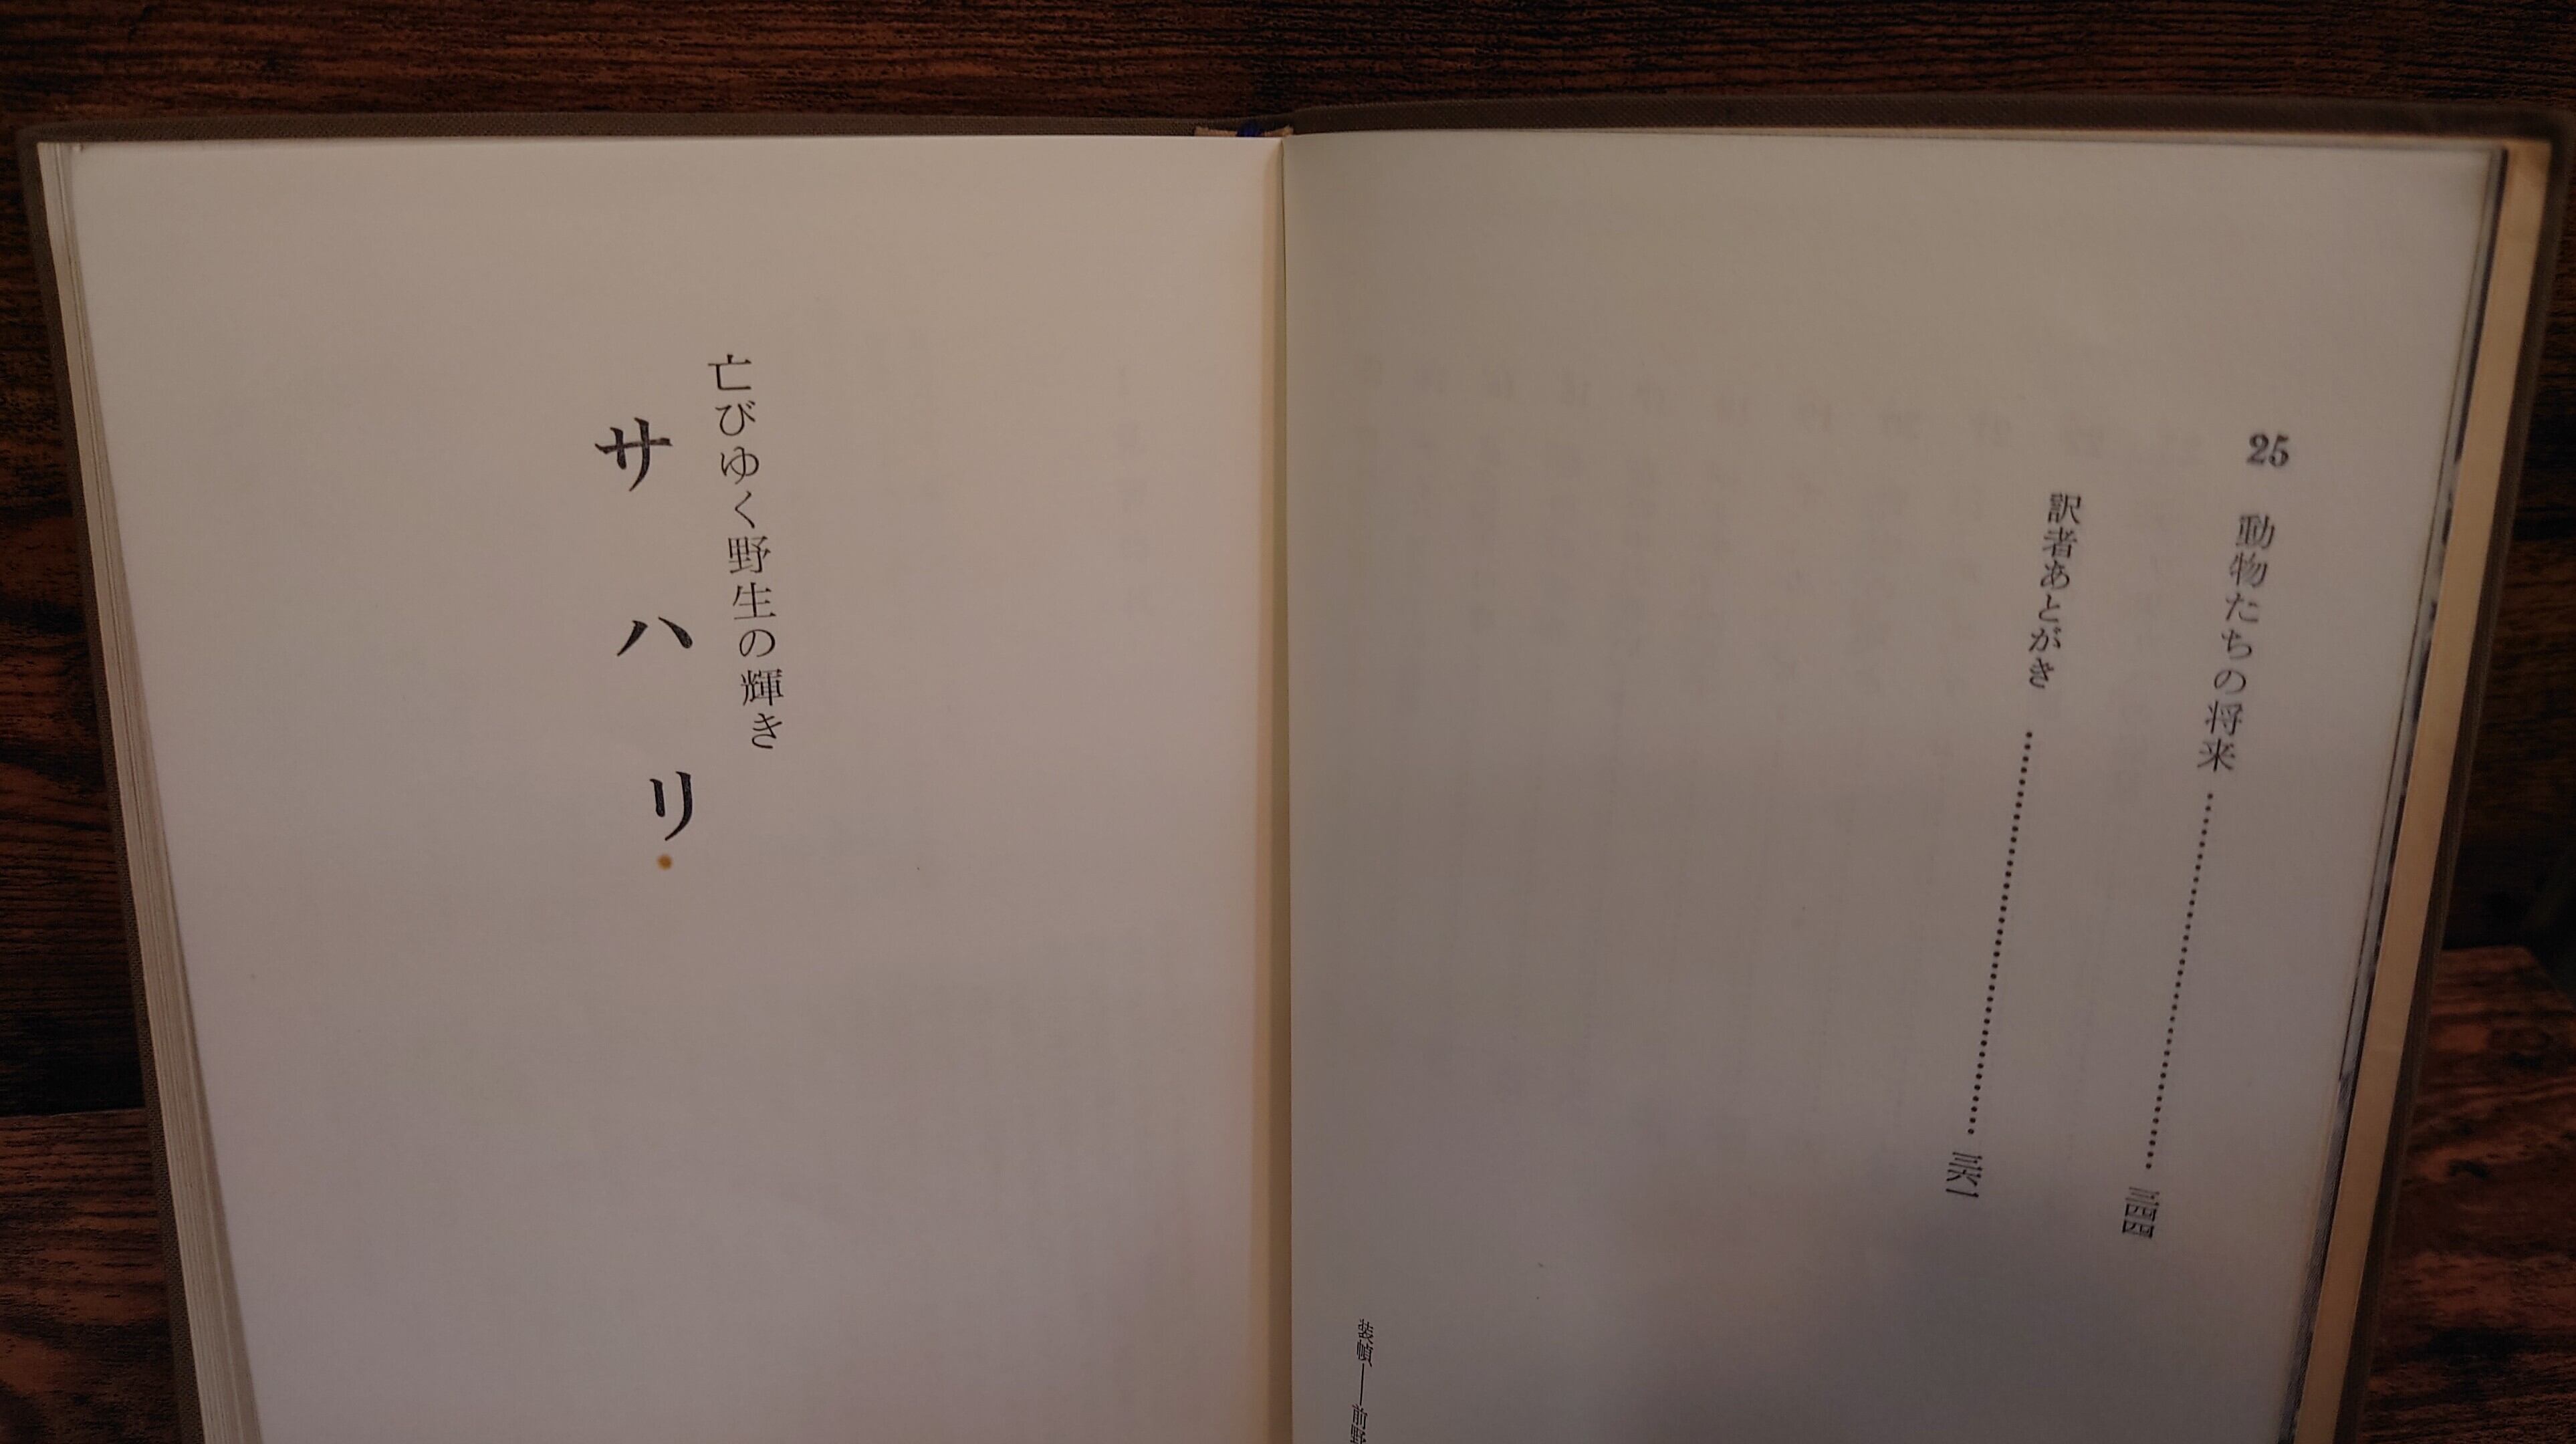 25 動物たちの将来 …………………… 三四四
訳者あとがき …………………… 三六一
装幀――前野
亡びゆく野生の輝き
サハリ